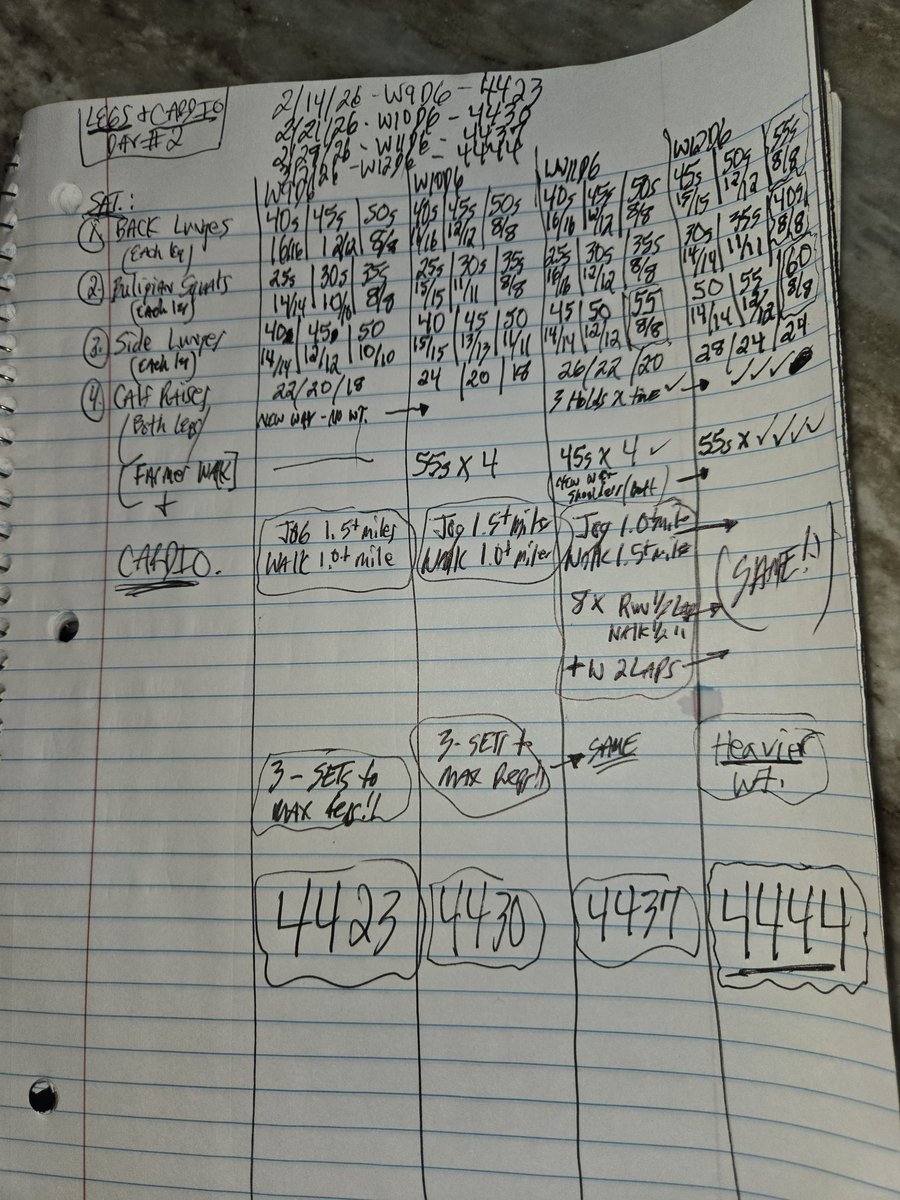 LEGS + CARDIO
DAY #2
2/14/26 - W9D6 - 4423
2/21/26 - W10D6 - 4430
2/28/26 - W11D6 - 4437
- W12D6 - 4444
SET:
W9D6
W10D6
W11D6
W12D6
① BACK Lunges
(Each leg)
40s | 45s | 50s
16/16 | 12/12 | 8/8
40s | 45s | 50s
16/16 | 12/12 | 8/8
40s | 45s | 50s
16/16 | 12/12 | 8/8
45s | 50s | 55s
15/15 | 12/12 | 8/8
② Squats
(Each leg)
25s | 30s | 35s
14/14 | 10/10 | 8/8
25s | 30s | 35s
15/15 | 11/11 | 8/8
25s | 30s | 35s
16/16 | 12/12 | 8/8
30s | 35s | 40s
14/14 | 11/11 | 8/8
③ Side Lunges
(Each leg)
40 | 45 | 50
14/14 | 12/12 | 10/10
40 | 45 | 50
15/15 | 13/13 | 11/11
45 | 50 | 55
14/14 | 12/12 | 8/8
50 | 55 | 60
14/14 | 12/12 | 8/8
④ Calf Raises
(Both Legs)
22/20/18
NEW WAY - NO WT. →
24 / 20 / 18
26 / 22 / 20
3 Holds x ✓ →
28 / 24 / 24
✓ ✓ ✓
[FARMER WALK]
+
55s x 4
45s x 4 ✓
Shoulders / →
55s x ✓ ✓ ✓ ✓
CARDIO.
JOG 1.5+ miles
WALK 1.0+ mile
Jog 1.5+ miles
WALK 1.0+ miles
Jog 1.0+ mile →
WALK 1.5+ mile
8 x RUN 1/2 →
WALK 1/2 "
+ W 2 LAPS →
(SAME!)
3-SETS to
MAX Reps!!
3-SETS to
MAX Reps!! →
SAME
Heavier
WT.
4423
4430
4437
4444